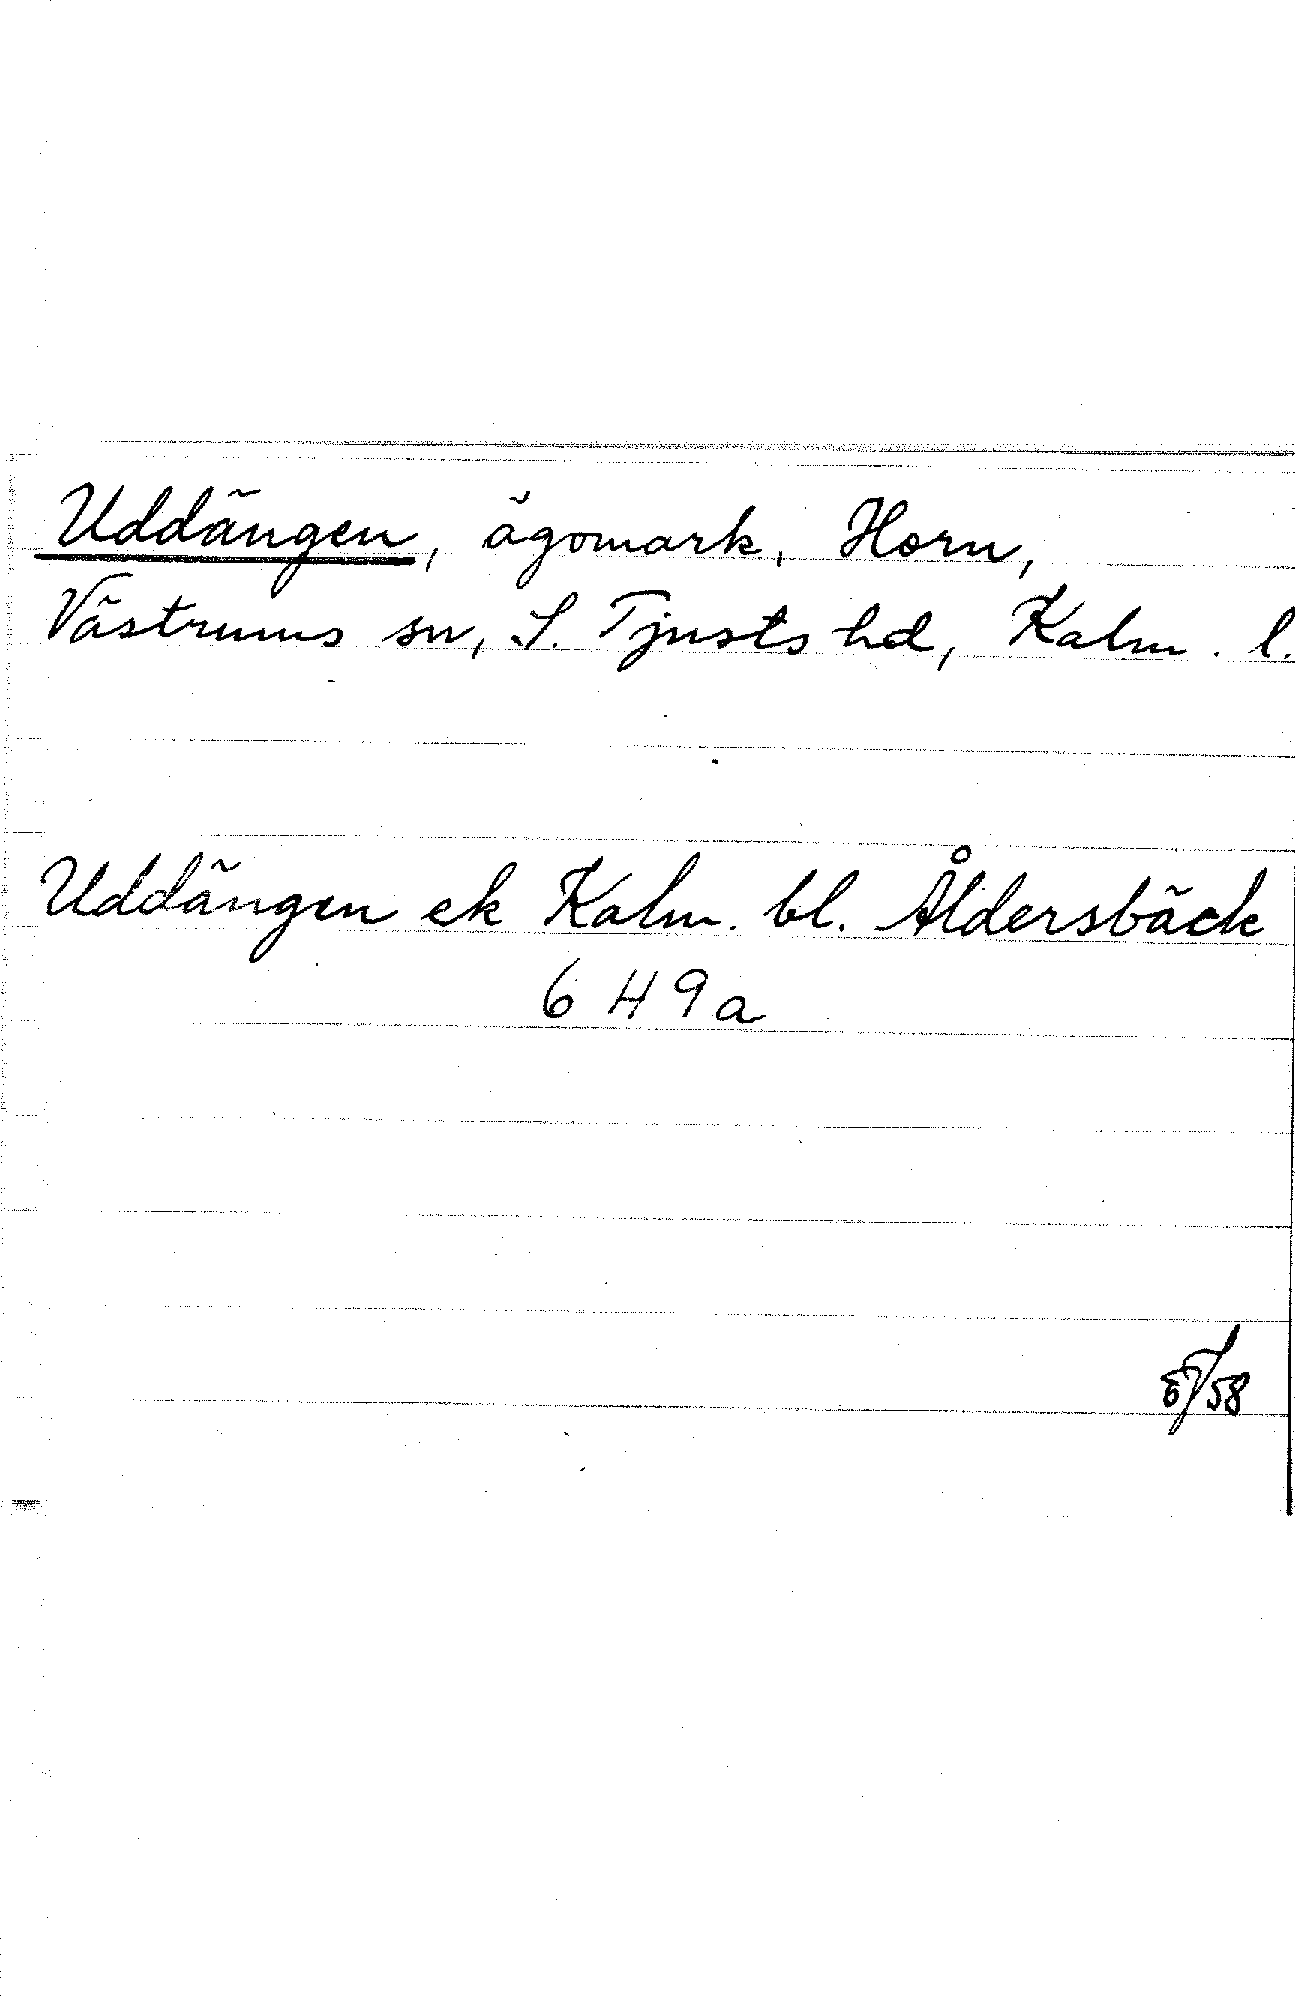 Uddängen, ägomark, Horn,
Västrums sn, S. Tjusts hd, Kalm. l.
Uddängen ek Kalm. bl. Åldersbäck
6 H 9 a